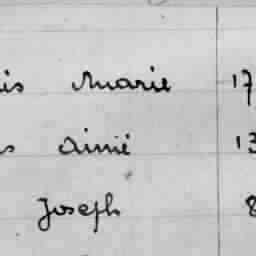 is Marie 17
s Aimé 13
Joseph 8